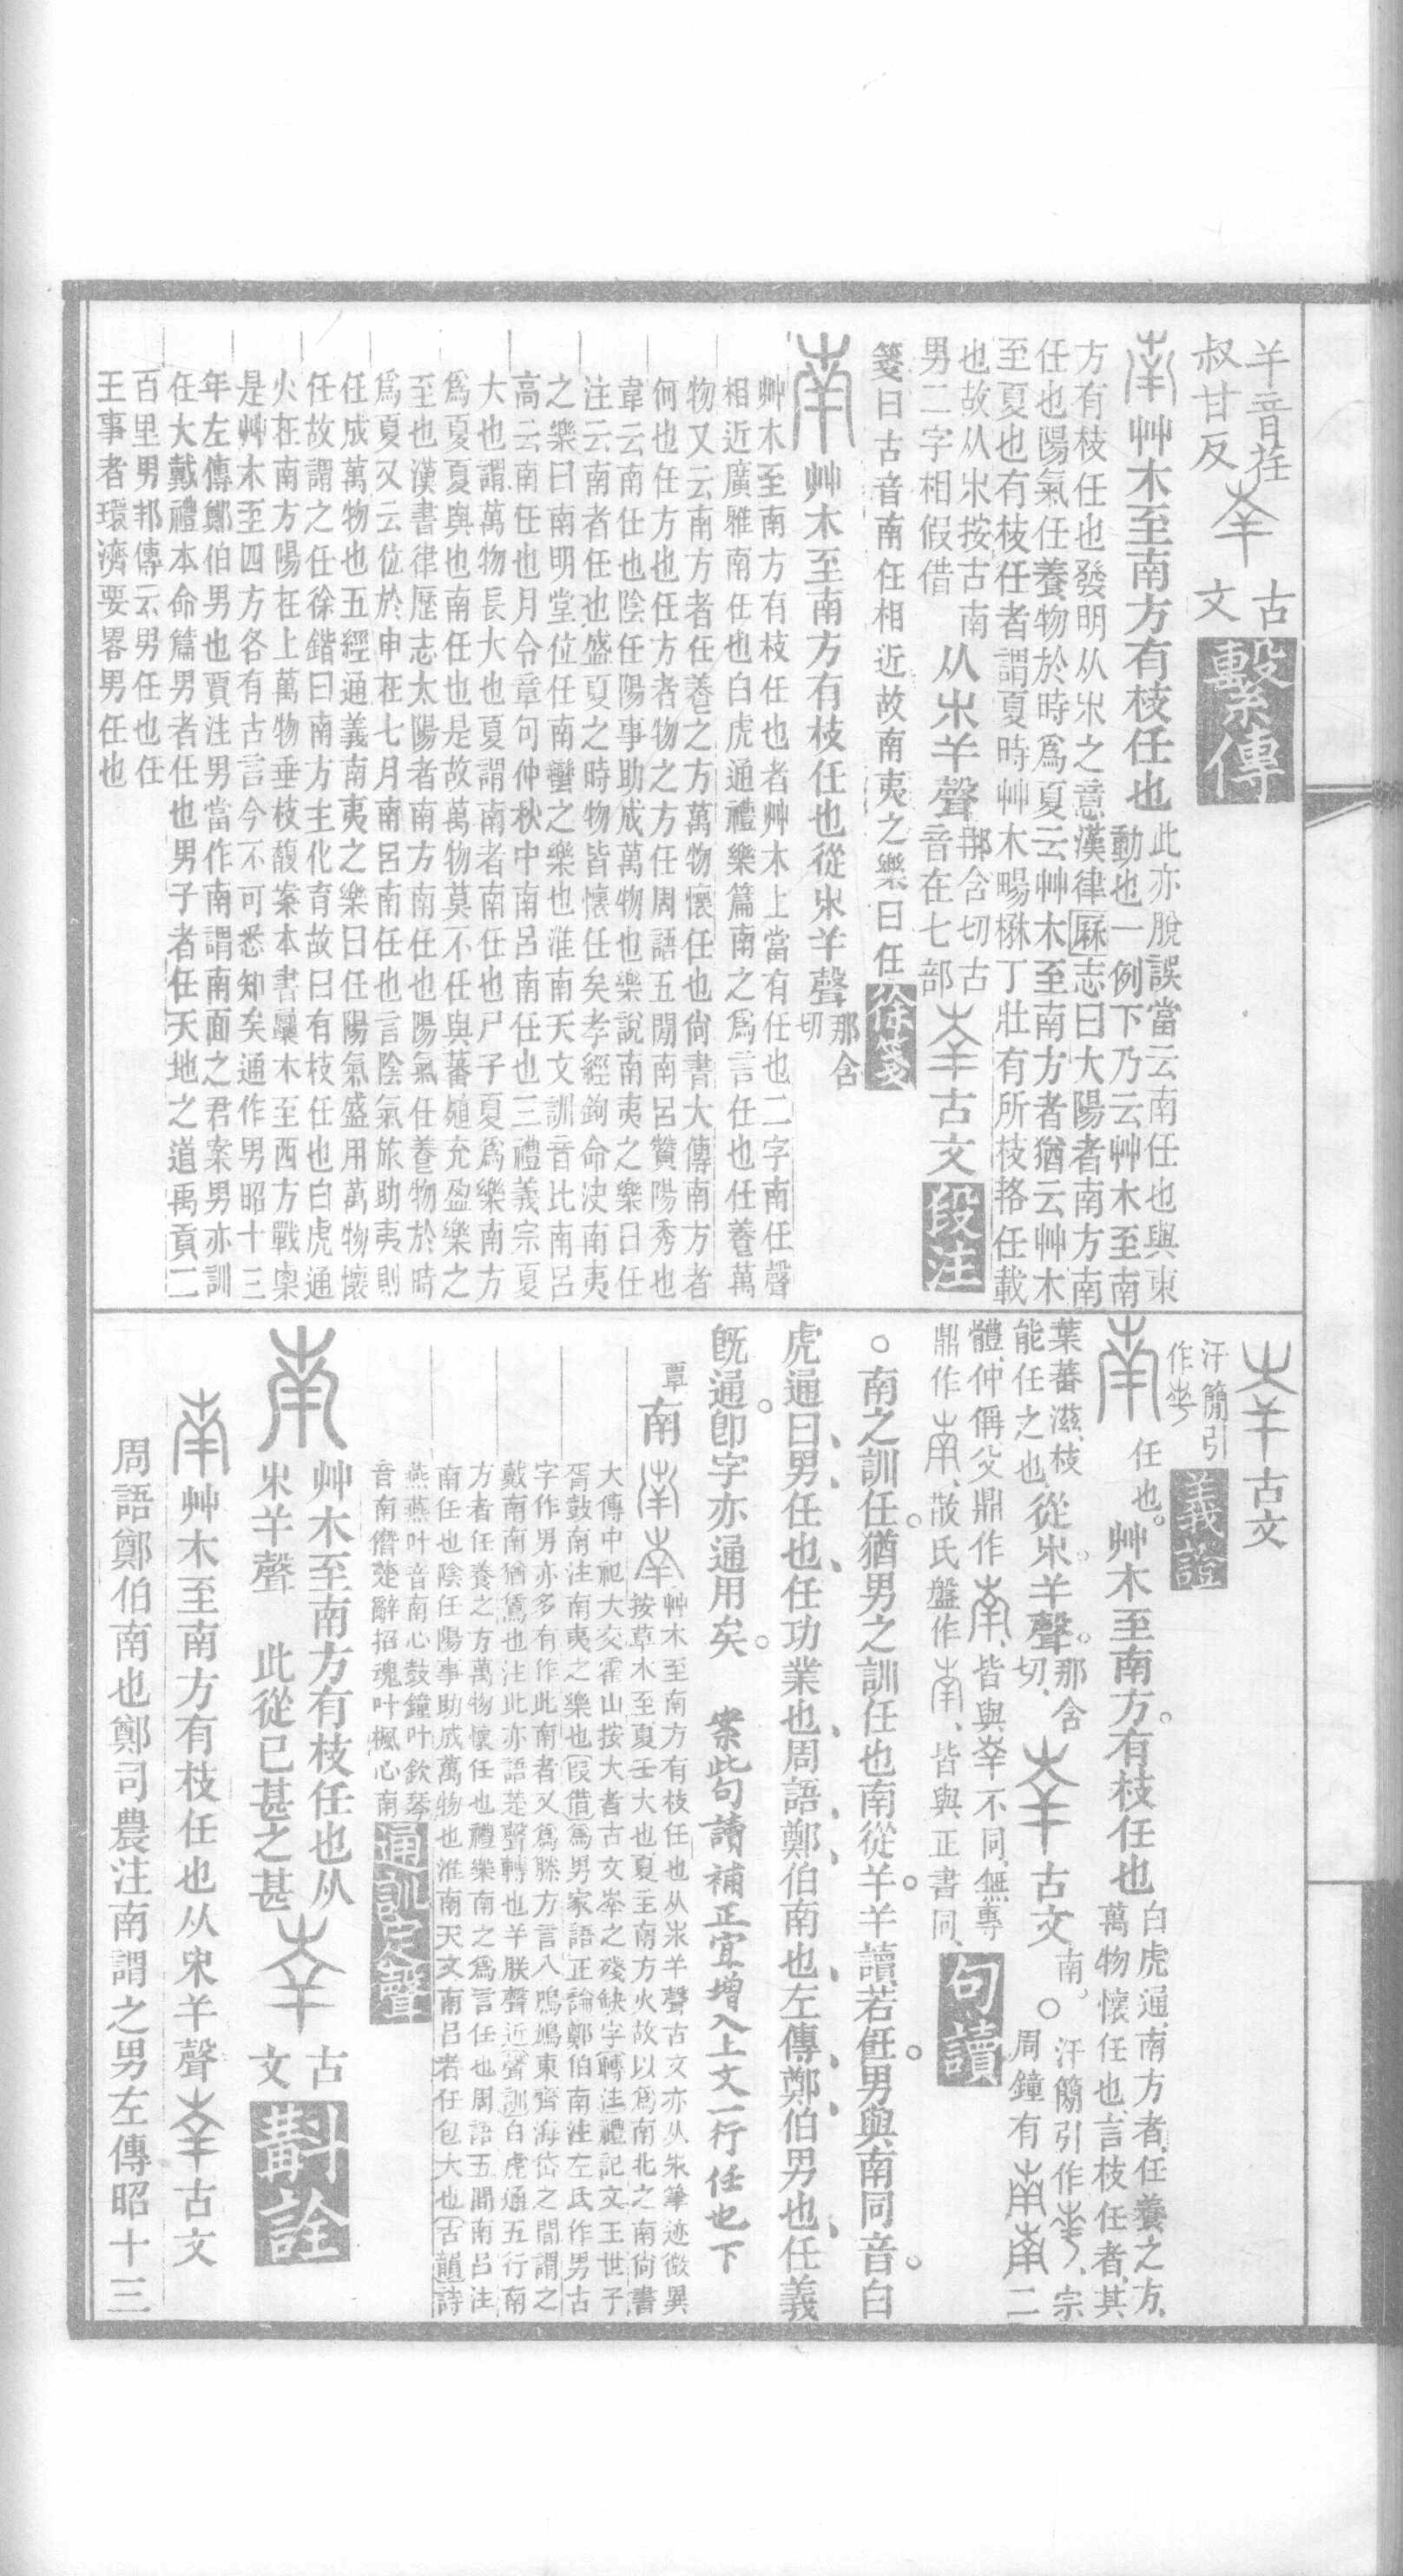 𢆉音荏
叔甘反
𡴖
古
文
繫傳
南艸木至南方有枝任也
此亦脫誤當云南任也與東
動也一例下乃云艸木至南
方有枝任也發明从𣎵之意漢律厤志曰大陽者南方南
任也陽氣任養物於時爲夏云艸木至南方者猶云艸木
至夏也有枝任者謂夏時艸木暢楙丁壯有所枝挌任載
也故从𣎵按古南
男二字相假借
从𣎵𢆉聲
那含切古
音在七部
𡴖古文
段注
箋曰古音南任相近故南夷之樂曰任
徐箋
南艸木至南方有枝任也從𣎵𢆉聲
那含
切
艸木至南方有枝任也者艸木上當有任也二字南任聲
相近廣雅南任也白虎通禮樂篇南之爲言任也任養萬
物又云南方者任養之方萬物懷任也尙書大傳南方者
何也任方也任方者物之方任周語五閒南呂贊陽秀也
韋云南任也陰任陽事助成萬物也樂說南夷之樂曰任
注云南者任也盛夏之時物皆懷任矣孝經鉤命決南夷
之樂曰南明堂位任南蠻之樂也淮南天文訓音比南呂
高云南任也月令章句仲秋中南呂南任也三禮義宗夏
大也謂萬物長大也夏謂南者南任也尸子夏爲樂南方
爲夏夏與也南任也是故萬物莫不任與蕃殖充盈樂之
至也漢書律歷志太陽者南方南任也陽氣任養物於時
爲夏又云位於申在七月南呂南任也言陰氣旅助夷則
任成萬物也五經通義南夷之樂曰任陽氣盛用萬物懷
任故謂之任徐鍇曰南方主化育故曰有枝任也白虎通
火在南方陽在上萬物垂枝馥案本書㮚木至西方戰㮚
是艸木至四方各有古言今不可悉知矣通作男昭十三
年左傳鄭伯男也賈注男當作南謂南面之君案男亦訓
任大戴禮本命篇男者任也男子者任天地之道禹貢二
百里男邦傳云男任也任
王事者環濟要畧男任也
𡴖古文
汗簡引
作
義證
南
任也。艸木至南方。有枝任也
白虎通、南方者、任養之方、
萬物懷任也、言枝任者、其
葉蕃滋、枝
能任之也、
從𣎵。𢆉聲。
那含
切、
𡴖古文
南。
○
汗簡引作、宗
周鐘有二
體、仲偁父鼎作、皆與𡴖不同、無專
鼎作、散氏盤作、皆與正書同、
句讀
○南之訓任。猶男之訓任也南從𢆉。𢆉讀若飪。男與南同音。白
虎通曰男任也、任功業也、周語鄭伯南也、左傳鄭伯男也、任義
旣通。卽字亦通用矣。 案此句讀補正宜增入上文一行任也下
覃
南
艸木至南方有枝任也从𣎵𢆉聲古文亦从𣎵筆迹微異
按草木至夏壬大也夏主南方火故以爲南北之南尙書
大傳中祀大交霍山按大者古文𡴖之殘缺字轉注禮記文王世子
胥鼓南注南夷之樂也叚借爲男家語正論鄭伯南注左氏作男古
字作男亦多有作此南者又爲䲢方言八鳲鳩東齊海岱之間謂之
戴南南猶鵀也注此亦語楚聲轉也𢆉朕聲近聲訓白虎通五行南
方者任養之方萬物懷任也禮樂南之爲言任也周語五閒南呂注
南任也陰任陽事助成萬物也淮南天文南呂者任包大也古韻詩
燕燕叶音南心鼓鐘叶欽琴
音南僭楚辭招魂叶楓心南
通訓定聲
南
艸木至南方有枝任也从
𣎵𢆉聲 此從已甚之甚
𡴖
古
文
斠詮
南艸木至南方有枝任也从𣎵𢆉聲𡴖古文
周語鄭伯南也鄭司農注南謂之男左傳昭十三